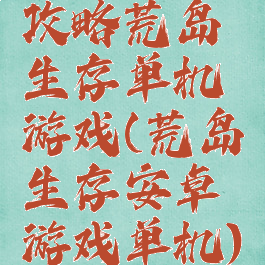 攻略荒岛
生存单机
游戏(荒岛
生存安卓
游戏单机)